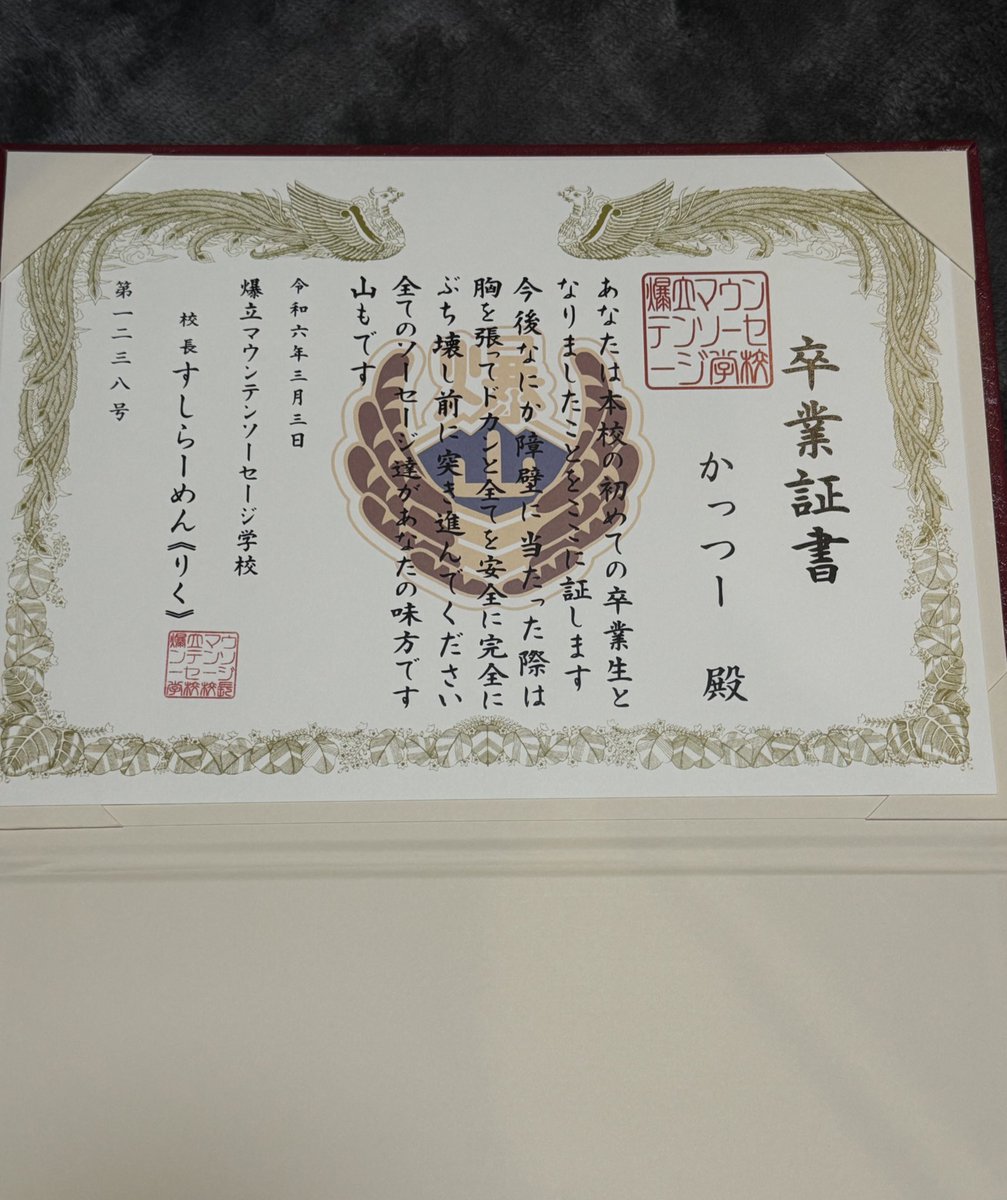 卒業証書
かっつー 殿
爆立マウンテンソーセージ学校
あなたは本校の初めての卒業生と
なりましたことをここに証します
今後なにか障壁に当たった際は
胸を張ってドカンと全てを安全に完全に
ぶち壊し前に突き進んでください
全てのソーセージ達があなたの味方です
山もです
爆
山
令和六年三月三日
爆立マウンテンソーセージ学校
校長 すしらーめん《りく》
爆立マウンテンソーセージ学校長
第一二三八号